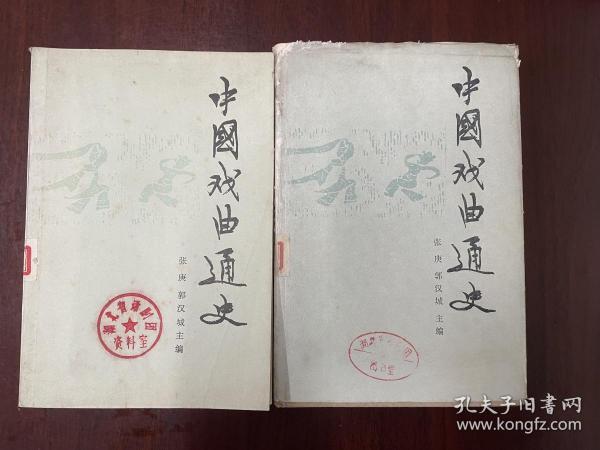 中國戏曲通史
张庚 郭汉城 主编
湖北省话剧团
资料室
中國戏曲通史
张庚 郭汉城 主编
孔夫子旧书网
www.kongfz.com